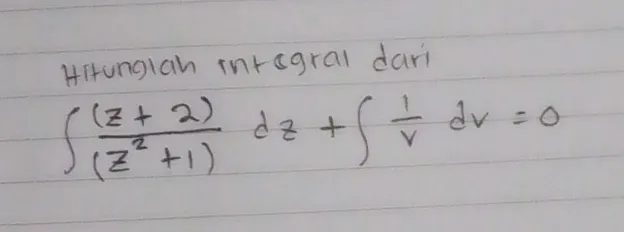 Hitunglah integral dari
∫ (z + 2) / (z² + 1) dz + ∫ 1/v dv = 0